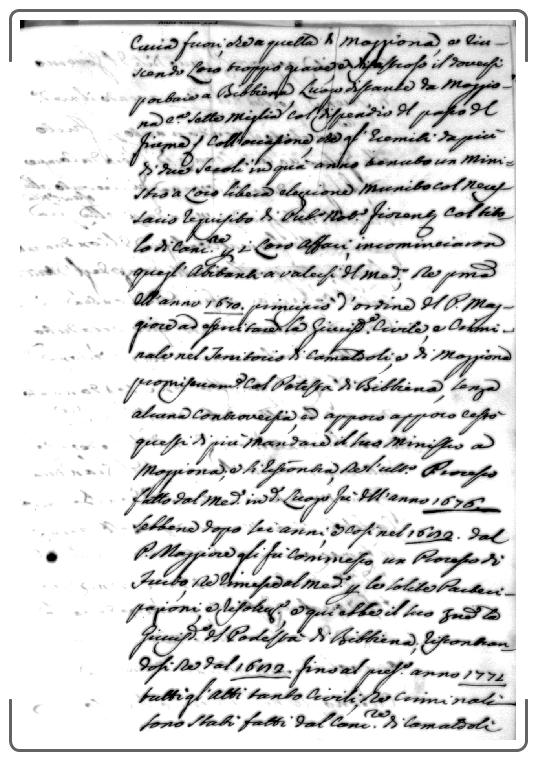 Curia fuori, che a quella di Moggiona, e riu-
scendo Loro troppo grave e disastroso il doversi
portare a Bibbiena Luogo distante da Moggio-
na c.a sette Miglia col dispendio del passo del
fiume, Coll'occasione che gl'Eremiti da più
di due secoli in quà anno tenuto un Mini-
stro a Loro libera elezione munito col neces-
sario requisito di Pub.o Not.o Fiorent.o col tito-
lo di Canc.re p i Loro Affari, incominciaron
quegl'Abitanti a valersi del Med.o, che prima
dell'anno 1670. principiò d'ordine del P. Mag-
giore ad esercitare la Giurisd.e Civile, e Crimi-
nale nel Territorio di Camaldoli, e di Moggiona
promiscuam.e Col Potestà di Bibbiena, senza
alcuna Controversia, ed appoco appoco cessò
questi di più mandare il suo Ministro a
Moggiona, e si riscontra, che l'ult.o Processo
fatto dal Med.o in d.o Luogo fu dell'anno 1676.
sebbene dopo sei anni e così nel 1682. dal
P. Maggiore gli fu commesso un Processo di
Furto, che rimesse al Med.o p le solite Parteci-
pazioni e, e qui ebbe il suo fine la
Giurisd.e del Podestà di Bibbiena, riscontran
dosi che dal 1682. fino al pres.e anno 1771
tutti gl'Atti tanto Civili, che Criminali
sono stati fatti dal Canc.re di Camaldoli